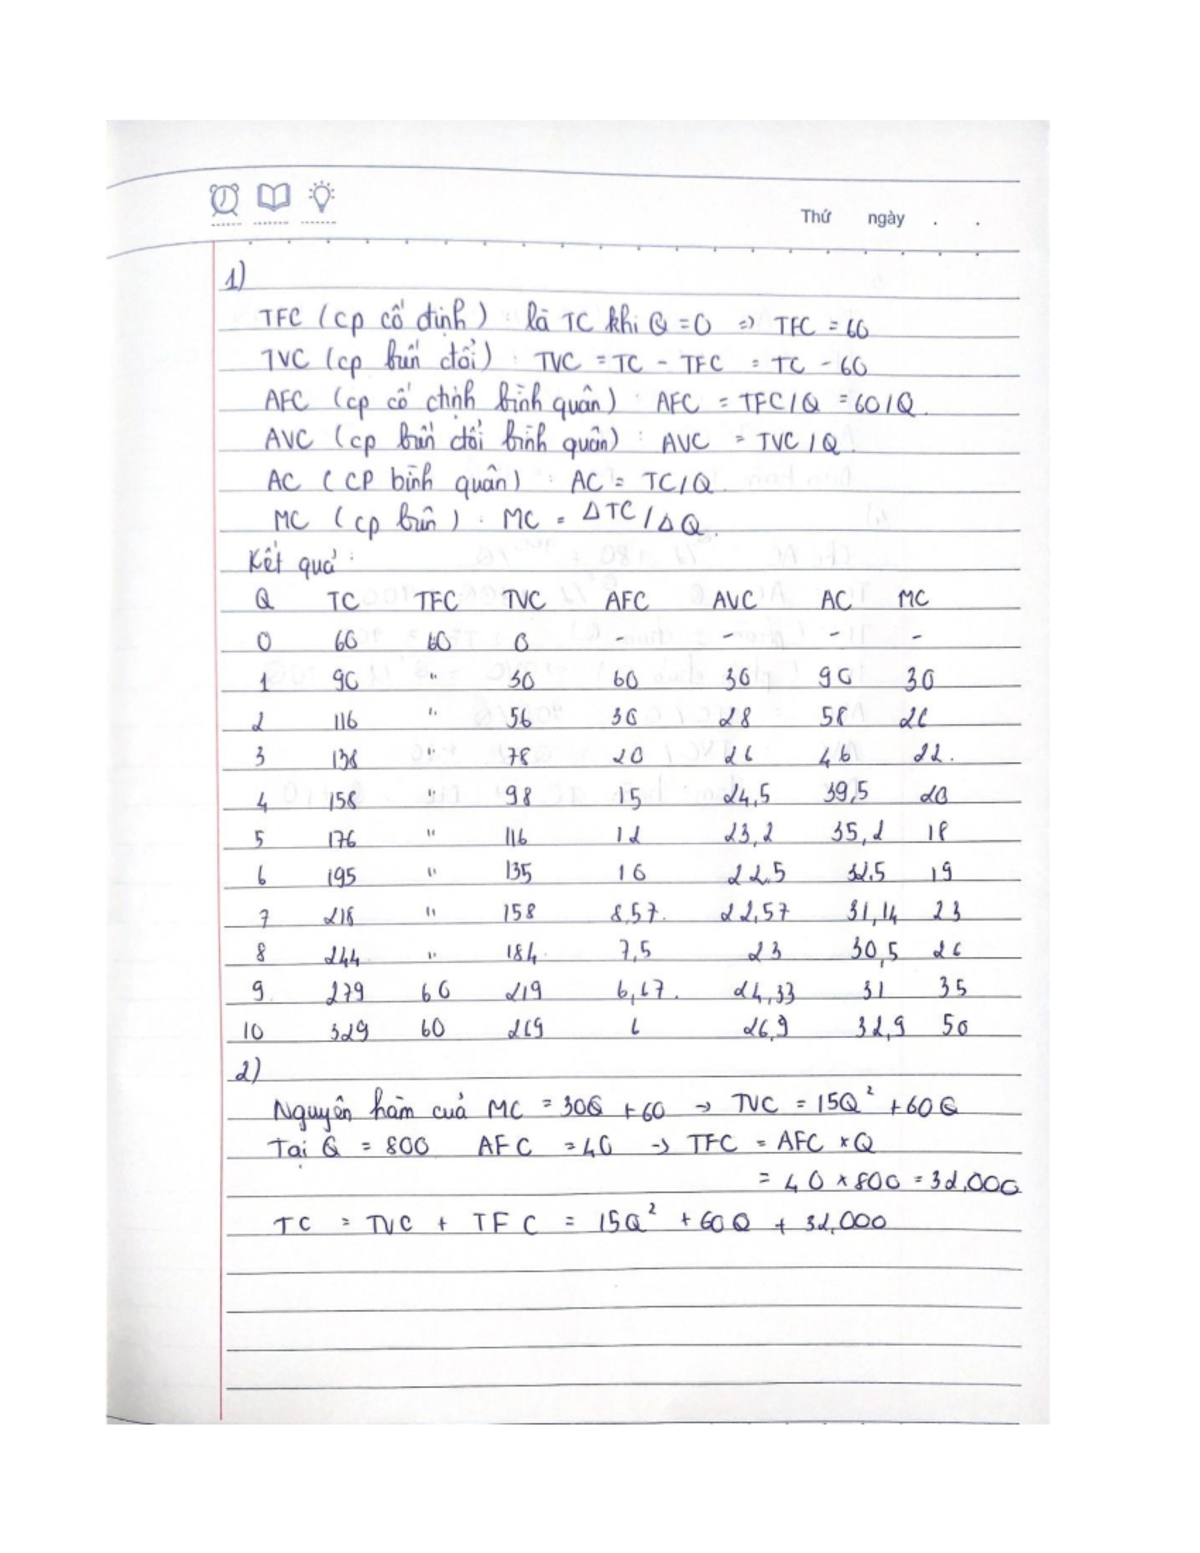 Thứ ngày . .
1)
TFC (cp cố định) : là TC khi Q = 0 => TFC = 60
TVC (cp biến đổi) : TVC = TC - TFC = TC - 60
AFC (cp cố định bình quân) : AFC = TFC/Q = 60/Q.
AVC (cp biến đổi bình quân) : AVC = TVC/Q.
AC (CP bình quân) : AC = TC/Q.
MC (cp biên) : MC = ΔTC/ΔQ.
Kết quả :
Q TC TFC TVC AFC AVC AC MC
0 60 60 0 - - - -
1 90 " 30 60 30 90 30
2 116 " 56 30 28 58 26
3 138 " 78 20 26 46 22.
4 158 " 98 15 24,5 39,5 20
5 176 " 116 12 23,2 35,2 18
6 195 " 135 10 22.5 32.5 19
7 218 " 158 8,57. 22,57 31,14 23
8 244 " 184. 7,5 23 30,5 26
9 279 60 219 6,67. 24,33 31 35
10 329 60 269 6 26,9 32,9 50
2)
Nguyên hàm cuả MC = 30Q + 60 → TVC = 15Q² + 60Q
Tại Q = 800 AFC = 40 → TFC = AFC × Q
= 40 × 800 = 32,000
TC = TVC + TFC = 15Q² + 60Q + 32,000